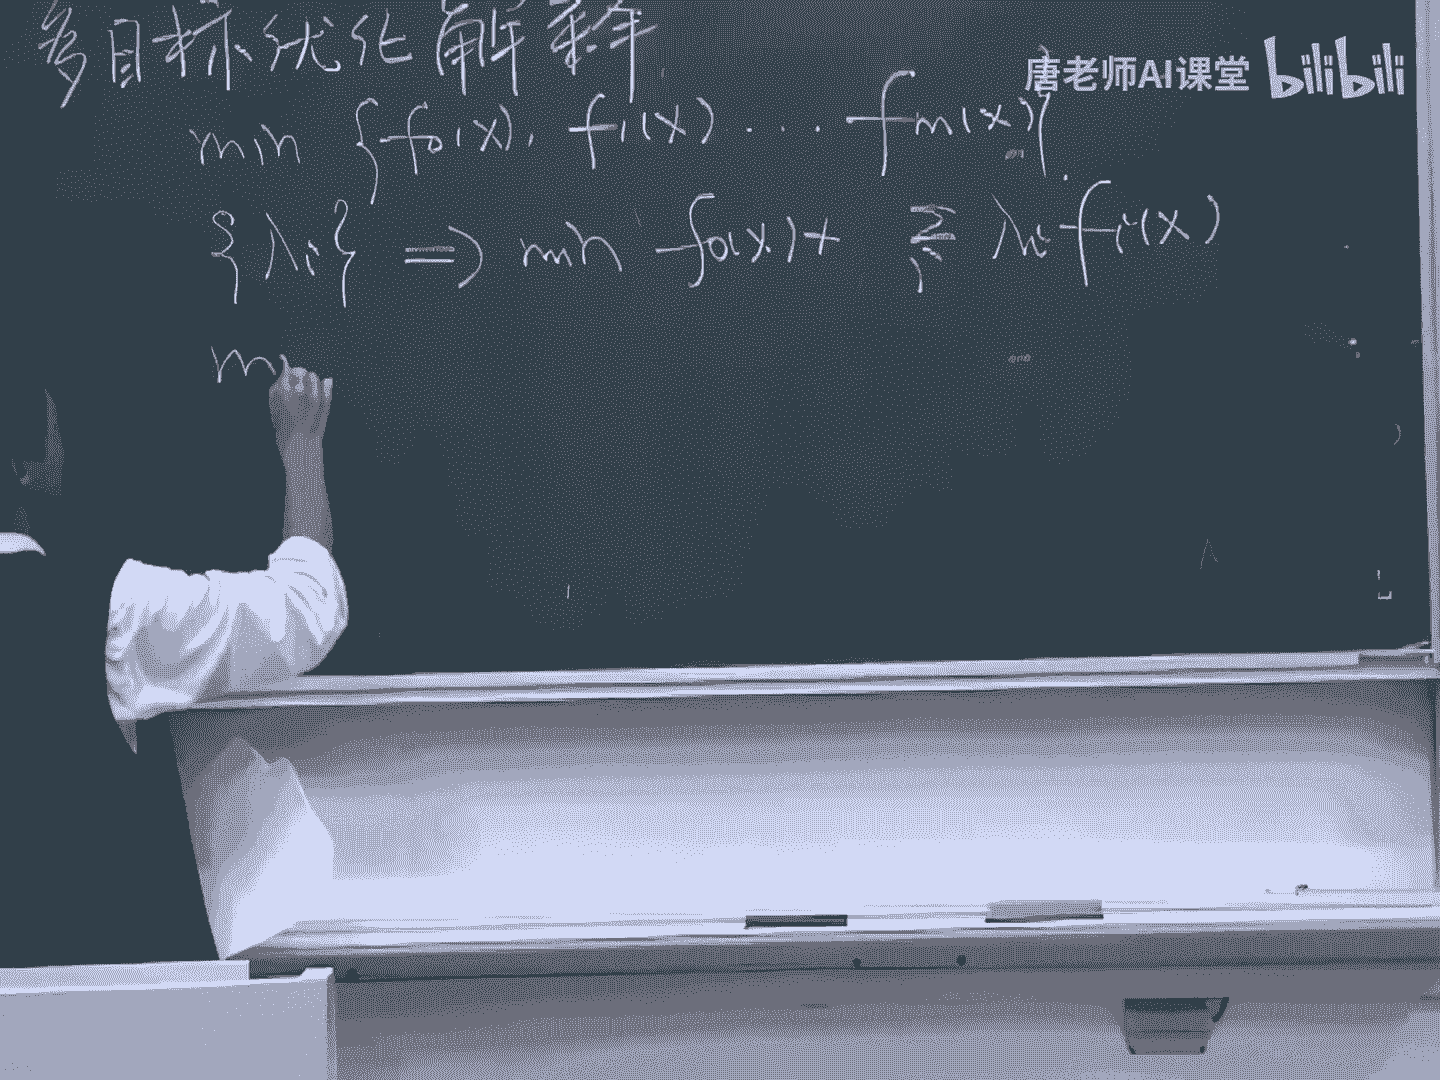 多目标优化解释
唐老师AI课堂 bilibili
min {f₀(x), f₁(x) ... fₘ(x)}
{λᵢ} ⇒ min f₀(x) + Σᵢ λᵢ fᵢ(x)
m